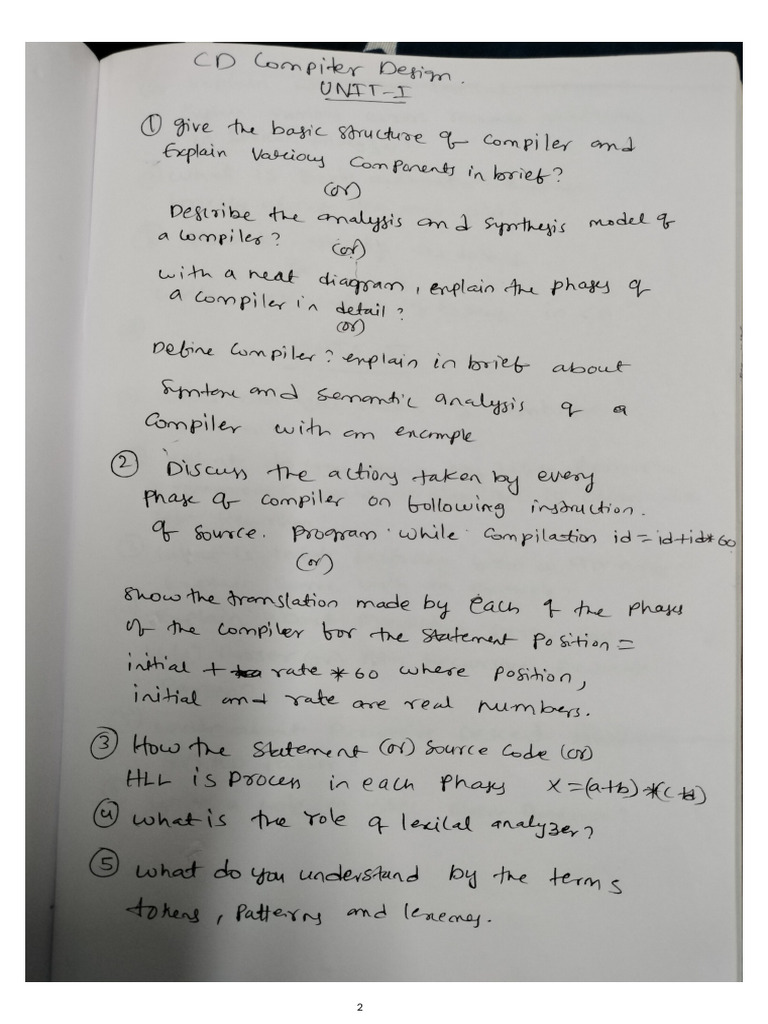 CD Compiter Design.
UNIT-I
① give the basic structure of compiler and
Explain Various Components in brief?
(or)
Describe the analysis and synthesis model of
a compiler?
(or)
with a neat diagram, explain the phases of
a compiler in detail?
(or)
Define compiler? explain in brief about
Syntax and semantic analysis of a
compiler with an example
② Discuss the actions taken by every
phase of compiler on following instruction.
of source. program while compilation id=id+id*60
(or)
show the translation made by each of the phases
of the compiler for the statement position=
initial + rate *60 where position,
initial and rate are real numbers.
③ How the statement (or) source code (or)
HLL is process in each phases X=(a+b)*(c+d)
④ what is the role of lexical analyzer?
⑤ what do you understand by the terms
tokens, patterns and lexemes.
2